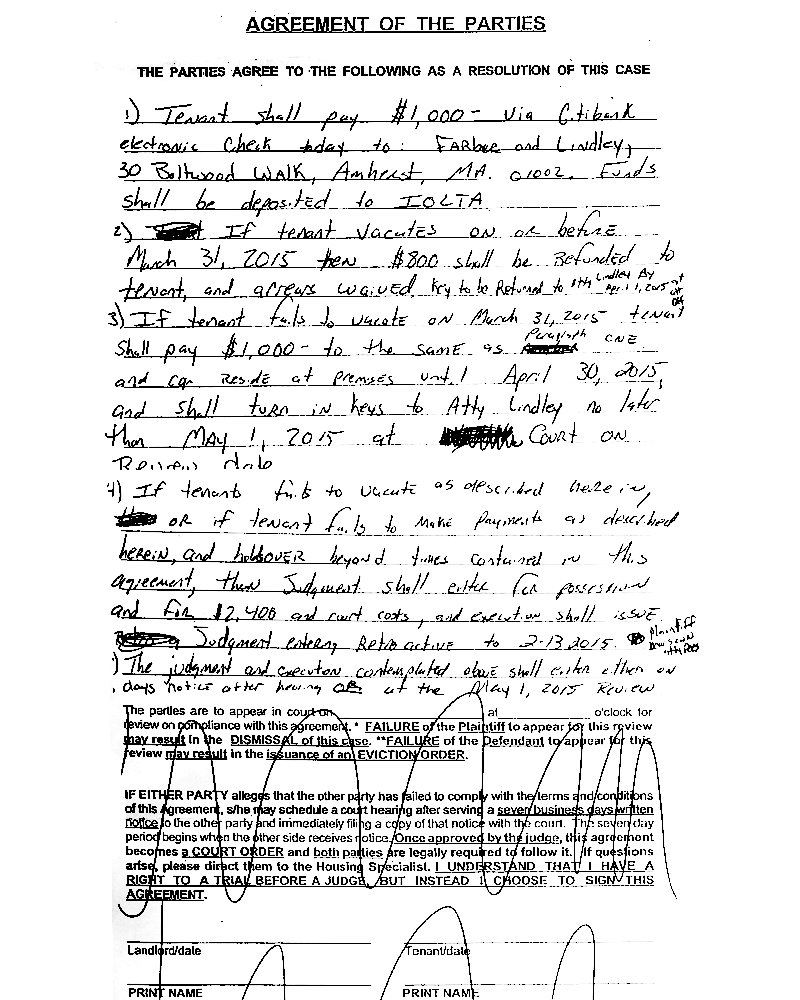 AGREEMENT OF THE PARTIES
THE PARTIES AGREE TO THE FOLLOWING AS A RESOLUTION OF THIS CASE
1) Tenant shall pay $1,000- via Citibank
electronic check today to: FARber and Lindley,
30 Boltwood WALK, Amherst, MA. 01002. Funds
shall be deposited to IOLTA
2) If tenant vacates on or before
March 31, 2015 then $800 shall be Refunded to
tenant, and arrears waived key to be Returned to Atty Lindley By April 1, 2015 at
3) If tenant fails to vacate on March 31, 2015 tenant
shall pay $1,000- to the same as Paragraph ONE
and can Reside at premises until April 30, 2015,
and shall turn in keys to Atty Lindley no later
than MAY 1, 2015 at Court on
Review date
4) If tenants fails to vacate as described herein,
OR if tenant fails to make payments as described
herein, and holdover beyond times contained in this
agreement, then Judgment shall enter for possession
and for $2,400 and court costs, and execution shall issue
Judgment entering Retroactive to 2-13-2015. Plaintiff
) The judgment and execution contemplated above shall enter either on
days notice after hearing OR at the May 1, 2015 Review
The parties are to appear in court on at o'clock for
review on compliance with this agreement. * FAILURE of the Plaintiff to appear for this review
may result in the DISMISSAL of this case. **FAILURE of the Defendant to appear for this
review may result in the issuance of an EVICTION ORDER.
IF EITHER PARTY alleges that the other party has failed to comply with the terms and conditions
of this Agreement, s/he may schedule a court hearing after serving a seven business days written
notice to the other party and immediately filing a copy of that notice with the court. This seven day
period begins when the other side receives notice. Once approved by the judge, this agreement
becomes a COURT ORDER and both parties are legally required to follow it. If questions
arise, please direct them to the Housing Specialist. I UNDERSTAND THAT I HAVE A
RIGHT TO A TRIAL BEFORE A JUDGE, BUT INSTEAD I CHOOSE TO SIGN THIS
AGREEMENT.
Landlord/date Tenant/date
PRINT NAME PRINT NAME